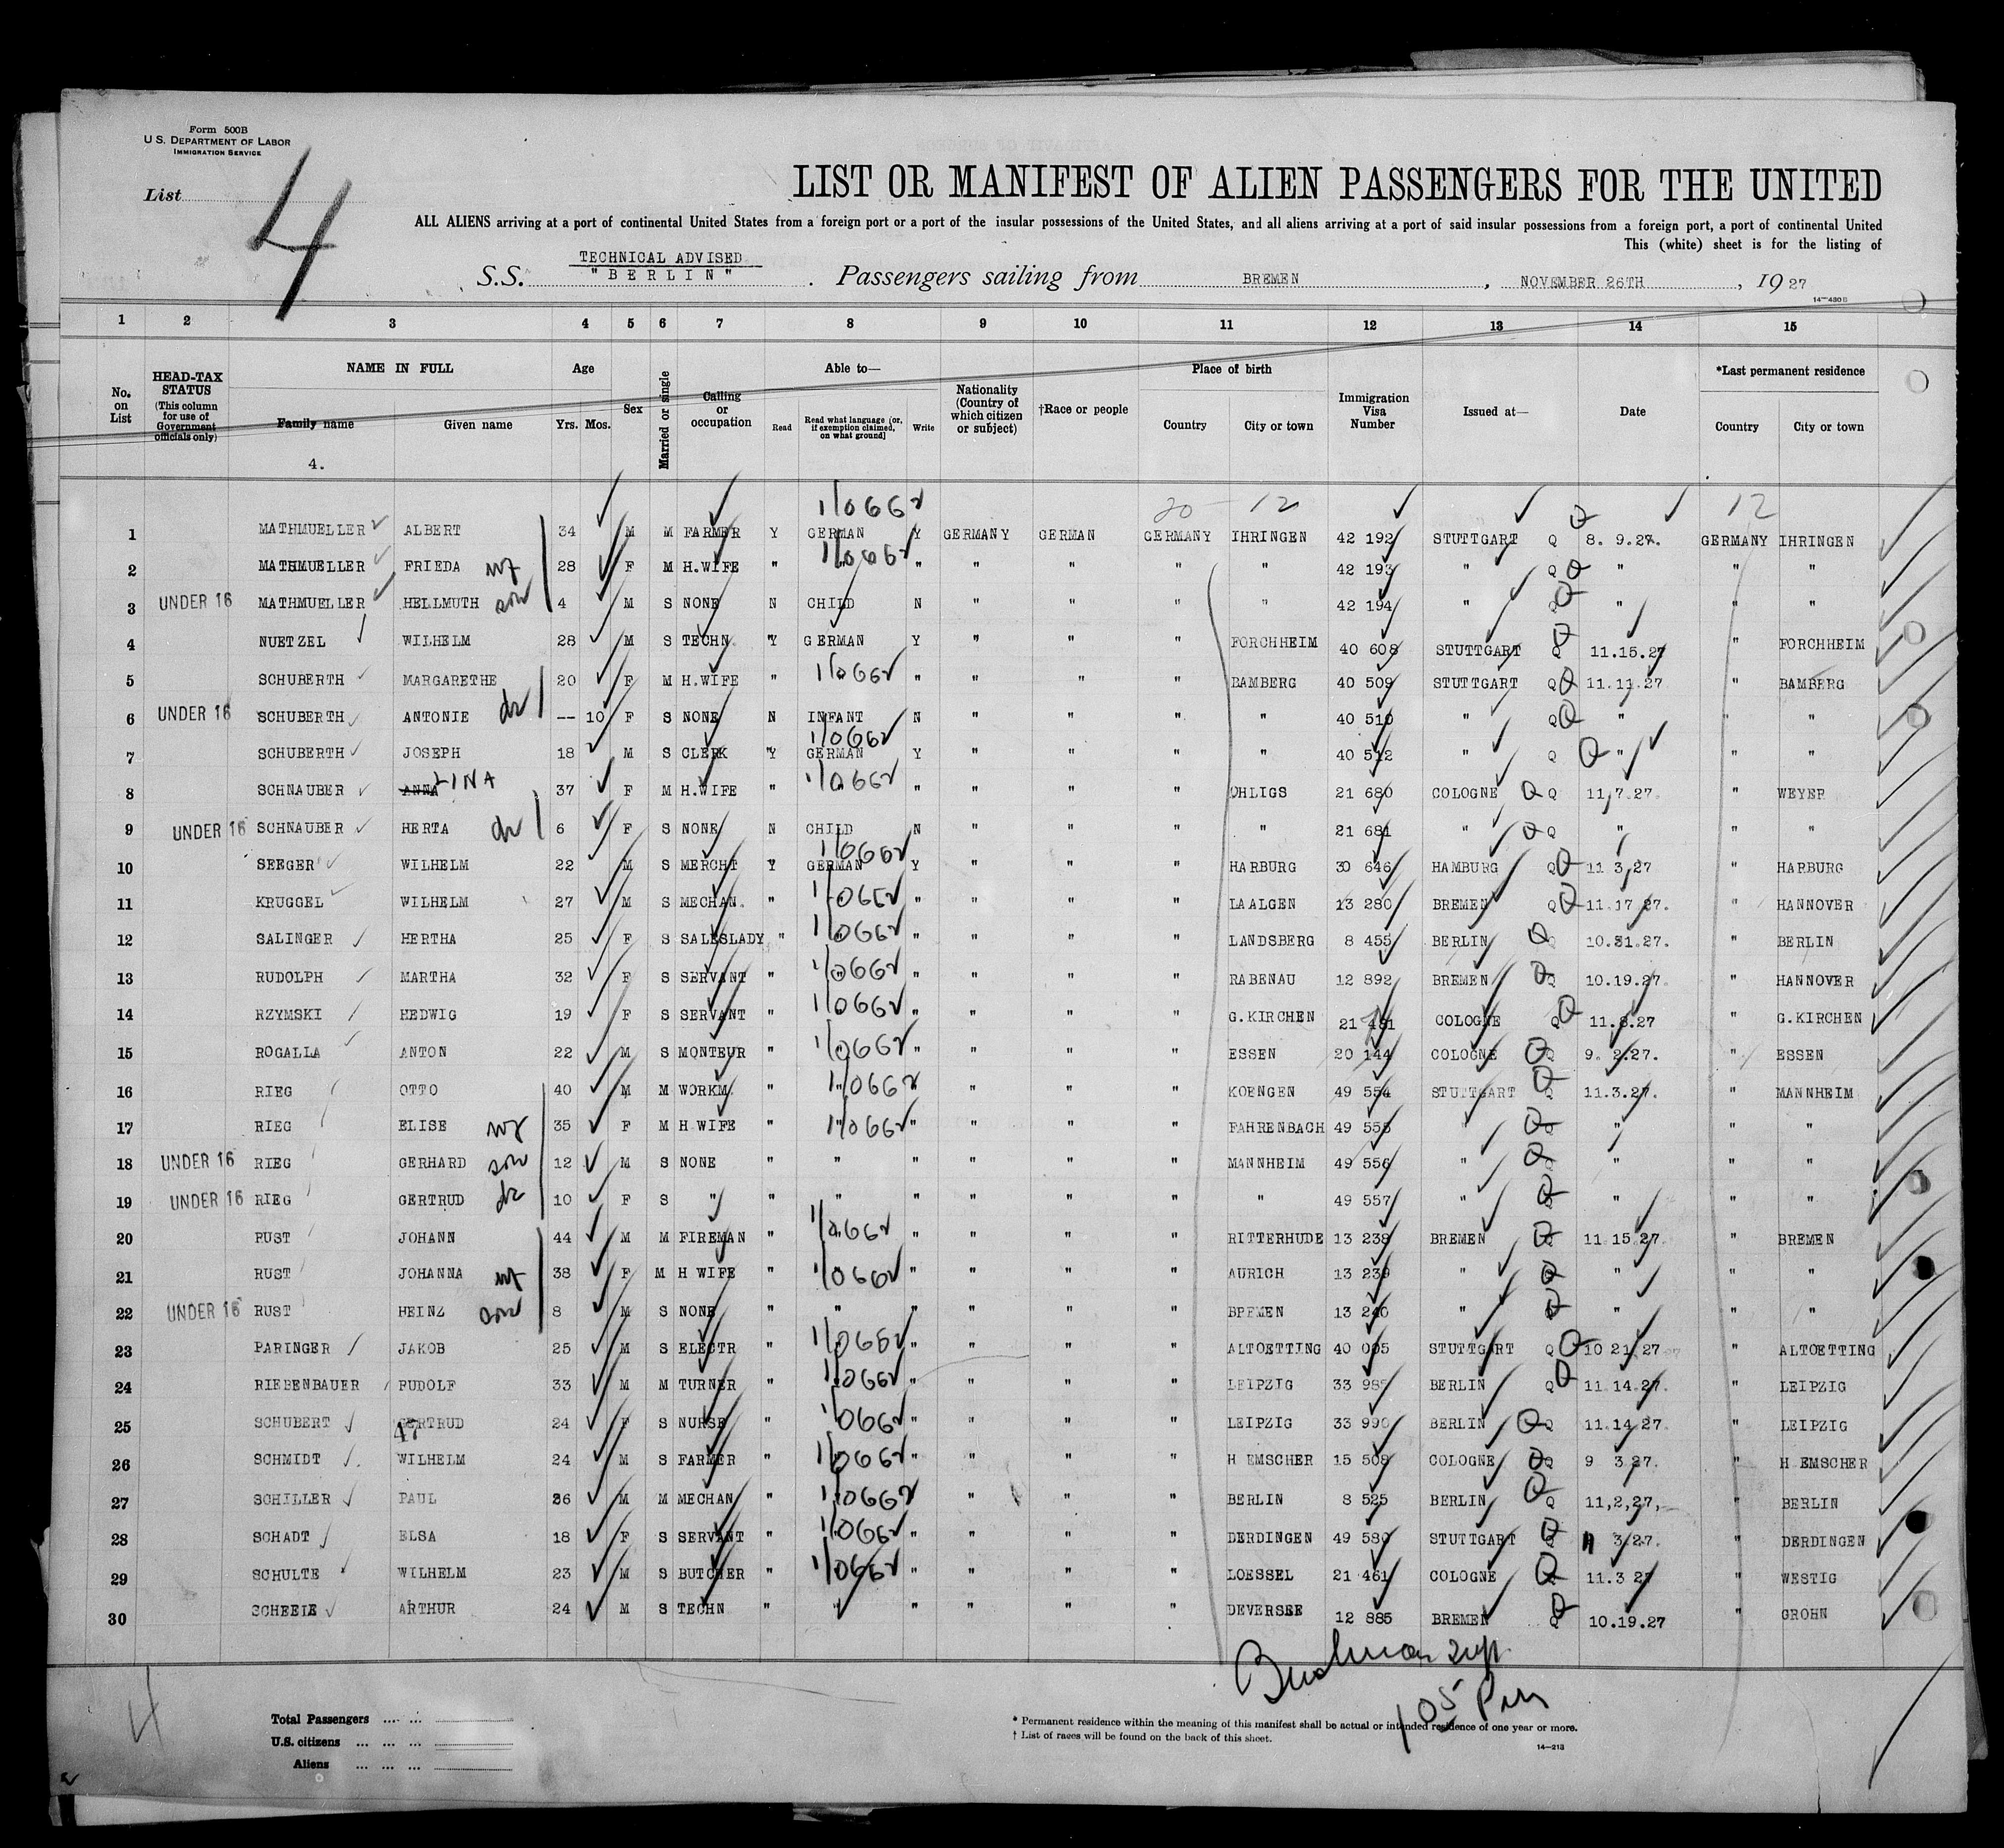 Form 500B
U. S. DEPARTMENT OF LABOR
IMMIGRATION SERVICE
List
4
LIST OR MANIFEST OF ALIEN PASSENGERS FOR THE UNITED
ALL ALIENS arriving at a port of continental United States from a foreign port or a port of the insular possessions of the United States, and all aliens arriving at a port of said insular possessions from a foreign port, a port of continental United
This (white) sheet is for the listing of
TECHNICAL ADVISED
S.S. "BERLIN" . Passengers sailing from BREMEN , NOVEMBER 26TH , 19 27
14—430 B
1 2 3 4 5 6 7 8 9 10 11 12 13 14 15
No. on List
HEAD-TAX STATUS (This column for use of Government officials only)
NAME IN FULL Family name Given name
Age Yrs. Mos.
Sex
Married or single
Calling or occupation
Able to— Read Read what language [or, if exemption claimed, on what ground] Write
Nationality (Country of which citizen or subject)
†Race or people
Place of birth Country City or town
Immigration Visa Number
Issued at—
Date
*Last permanent residence Country City or town
4.
20 - 12 12
1 MATHMUELLER ALBERT 34 M M FARMER Y GERMAN Y GERMANY GERMAN GERMANY IHRINGEN 42 192 STUTTGART Q 8. 9.27. GERMANY IHRINGEN
2 MATHMUELLER FRIEDA wf 28 F M H.WIFE " " " " " " " 42 193 " Q " " "
3 UNDER 16 MATHMUELLER HELLMUTH son 4 M S NONE N CHILD N " " " " 42 194 " Q " " "
4 NUETZEL WILHELM 28 M S TECHN. Y GERMAN Y " " " FORCHHEIM 40 608 STUTTGART Q 11.15.27 " FORCHHEIM
5 SCHUBERTH MARGARETHE 20 F M H.WIFE " " " " " " BAMBERG 40 509 STUTTGART Q 11.11.27 " BAMBERG
6 UNDER 16 SCHUBERTH ANTONIE dr -- 10 F S NONE N INFANT N " " " " 40 510 " Q " " "
7 SCHUBERTH JOSEPH 18 M S CLERK Y GERMAN Y " " " " 40 512 " Q " " "
8 SCHNAUBER ANNA LINA 37 F M H.WIFE " " " " " " OHLIGS 21 680 COLOGNE Q 11,7.27. " WEYER
9 UNDER 16 SCHNAUBER HERTA dr 6 F S NONE N CHILD N " " " " 21 681 " Q " " "
10 SEEGER WILHELM 22 M S MERCHT Y GERMAN Y " " " HARBURG 30 646 HAMBURG Q 11 3,27 " HARBURG
11 KRUGGEL WILHELM 27 M S MECHAN. " " " " " " LAALGEN 13 280 BREMEN Q 11.17 27. " HANNOVER
12 SALINGER HERTHA 25 F S SALESLADY " " " " " " LANDSBERG 8 455 BERLIN Q 10.31.27. " BERLIN
13 RUDOLPH MARTHA 32 F S SERVANT " " " " " " RABENAU 12 892 BREMEN Q 10.19.27. " HANNOVER
14 RZYMSKI HEDWIG 19 F S SERVANT " " " " " " G.KIRCHEN 21 481 COLOGNE Q 11.8.27 " G.KIRCHEN
15 ROGALLA ANTON 22 M S MONTEUR " " " " " " ESSEN 20 144 COLOGNE Q 9. 2.27. " ESSEN
16 RIEG OTTO 40 M M WORKM. " " " " " " KOENGEN 49 554 STUTTGART Q 11.3.27. " MANNHEIM
17 RIEG ELISE wf 35 F M H WIFE " " " " " " FAHRENBACH 49 555 " Q " " "
18 UNDER 16 RIEG GERHARD son 12 M S NONE " " " " " " MANNHEIM 49 556 " Q " " "
19 UNDER 16 RIEG GERTRUD dr 10 F S " " " " " " " " 49 557 " Q " " "
20 RUST JOHANN 44 M M FIREMAN " " " " " " RITTERHUDE 13 238 BREMEN Q 11 15 27. " BREMEN
21 RUST JOHANNA wf 38 F M H WIFE " " " " " " AURICH 13 239 " Q " " "
22 UNDER 16 RUST HEINZ son 8 M S NONE " " " " " " BREMEN 13 240 " Q " " "
23 PARINGER JAKOB 25 M S ELECTR " " " " " " ALTOETTING 40 005 STUTTGART Q 10 21 27 " ALTOETTING
24 RIEBENBAUER RUDOLF 33 M M TURNER " " " " " " LEIPZIG 33 985 BERLIN Q 11.14.27. " LEIPZIG
25 SCHUBERT GERTRUD 24 F S NURSE " " " " " " LEIPZIG 33 990 BERLIN Q 11.14 27. " LEIPZIG
47
26 SCHMIDT WILHELM 24 M S FARMER " " " " " " H EMSCHER 15 508 COLOGNE Q 9 3.27. " H EMSCHER
27 SCHILLER PAUL 36 M M MECHAN " " " " " " BERLIN 8 525 BERLIN Q 11,2,27, " BERLIN
28 SCHADT ELSA 18 F S SERVANT " " " " " " DERDINGEN 49 580 STUTTGART Q 11 3.27. " DERDINGEN
29 SCHULTE WILHELM 23 M S BUTCHER " " " " " " LOESSEL 21 461 COLOGNE Q 11.3 27 " WESTIG
30 SCHEELE ARTHUR 24 M S TECHN " " " " " " DEVERSEE 12 885 BREMEN Q 10.19.27 " GROHN
105
4
Total Passengers
U.S. citizens
Aliens
* Permanent residence within the meaning of this manifest shall be actual or intended residence of one year or more.
† List of races will be found on the back of this sheet.
14—213